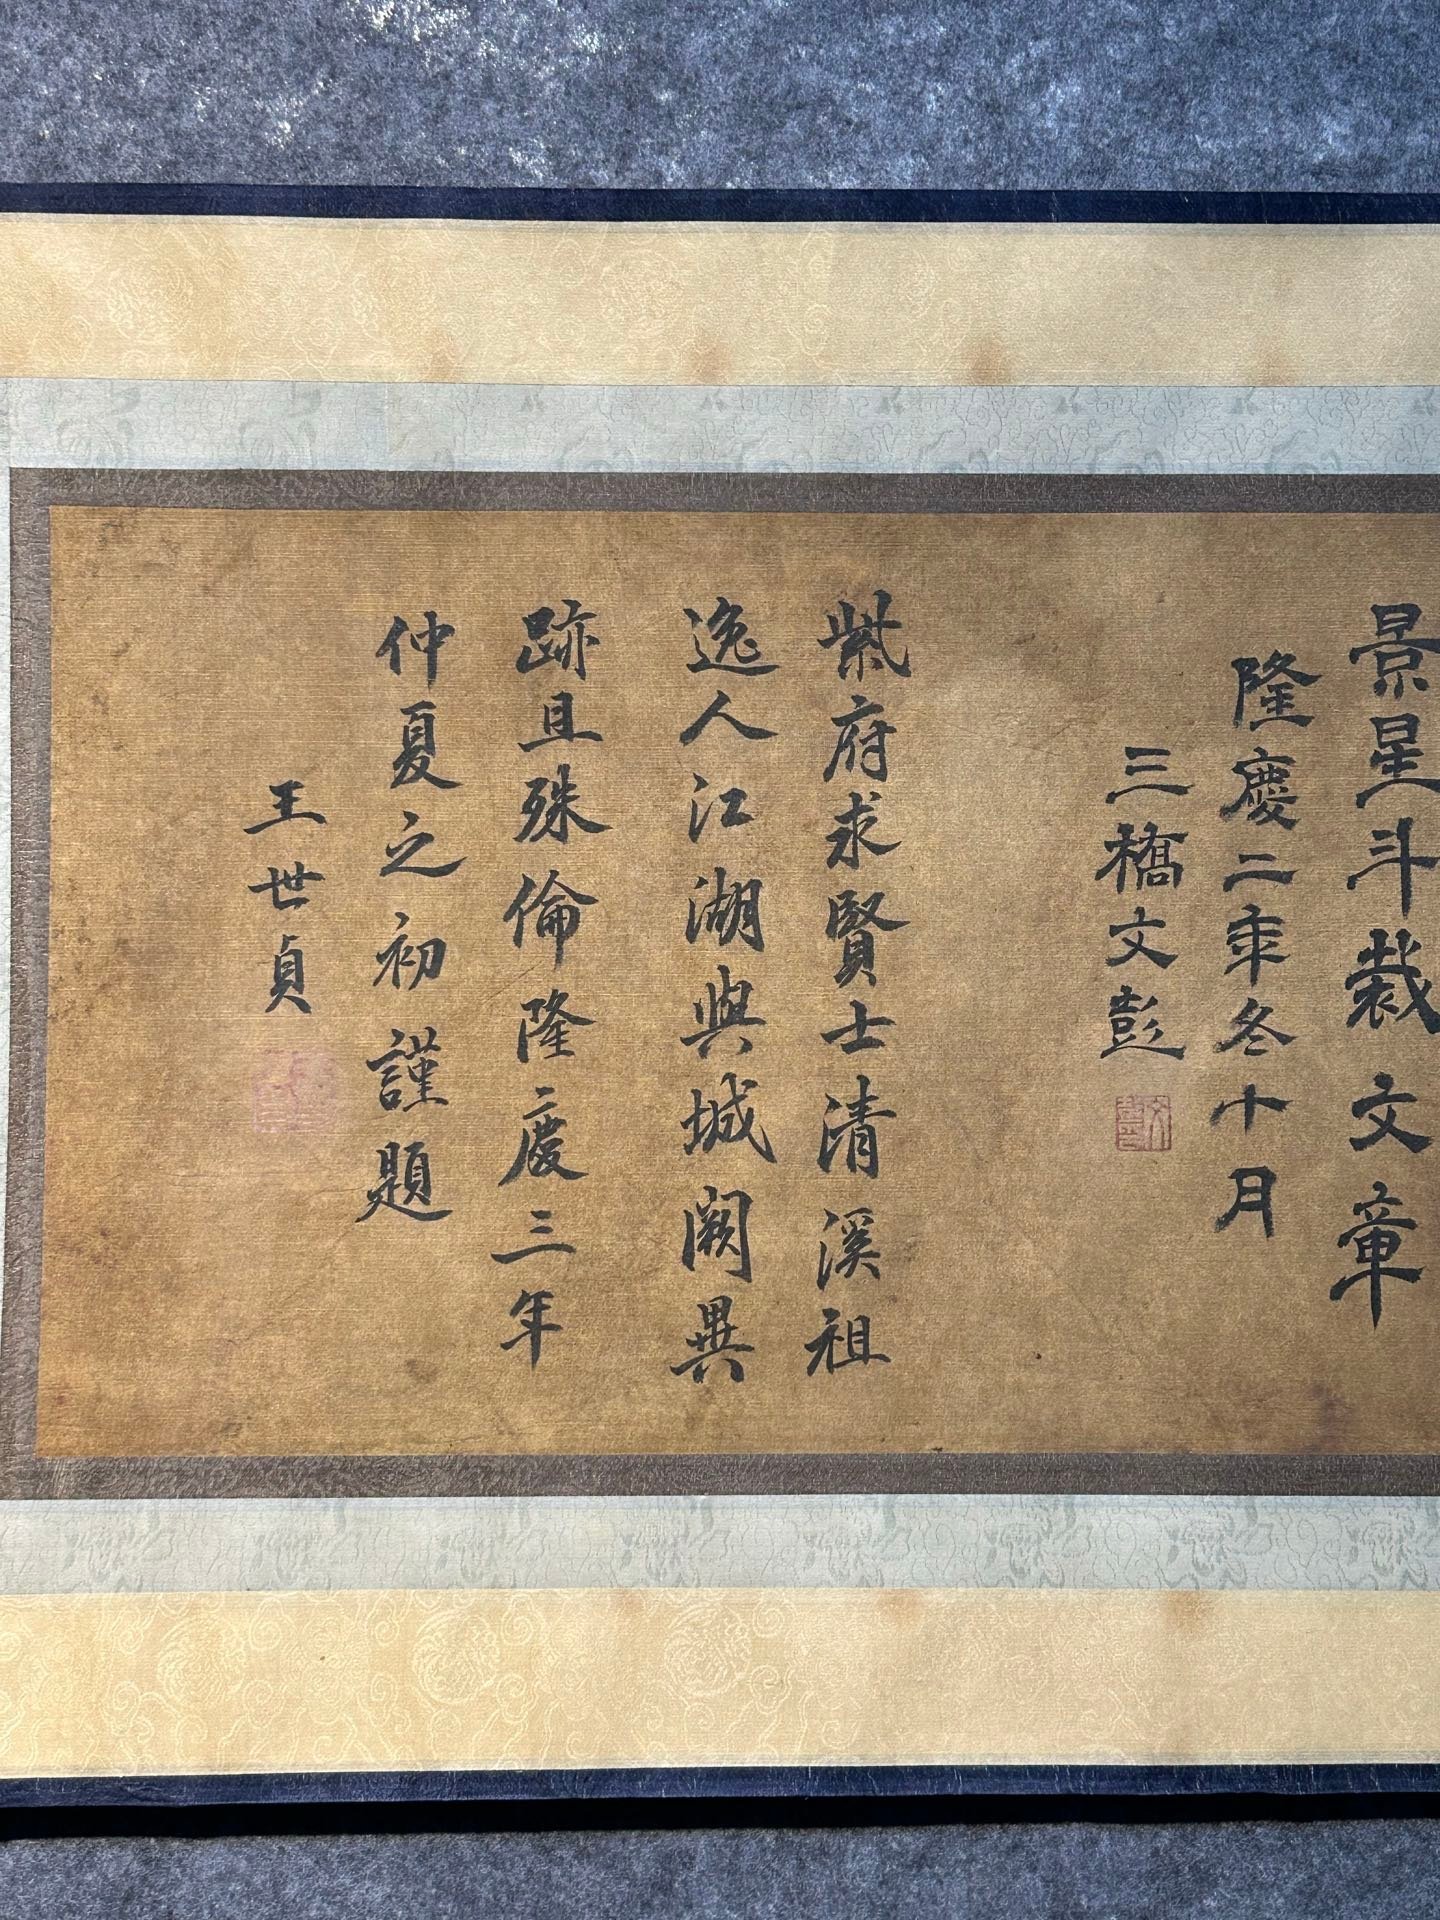 景星斗裁文章
隆慶二年冬十月
三橋文彭
紫府求賢士清溪祖
逸人江湖與城闕異
跡且殊倫隆慶三年
仲夏之初謹題
王世貞